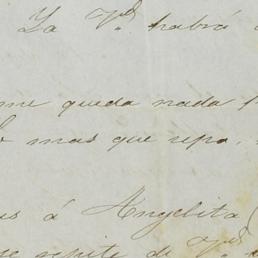 Ya Vd. habrá
me queda nada p
mas que sepa,
us á Angelita
se repite de Vd.